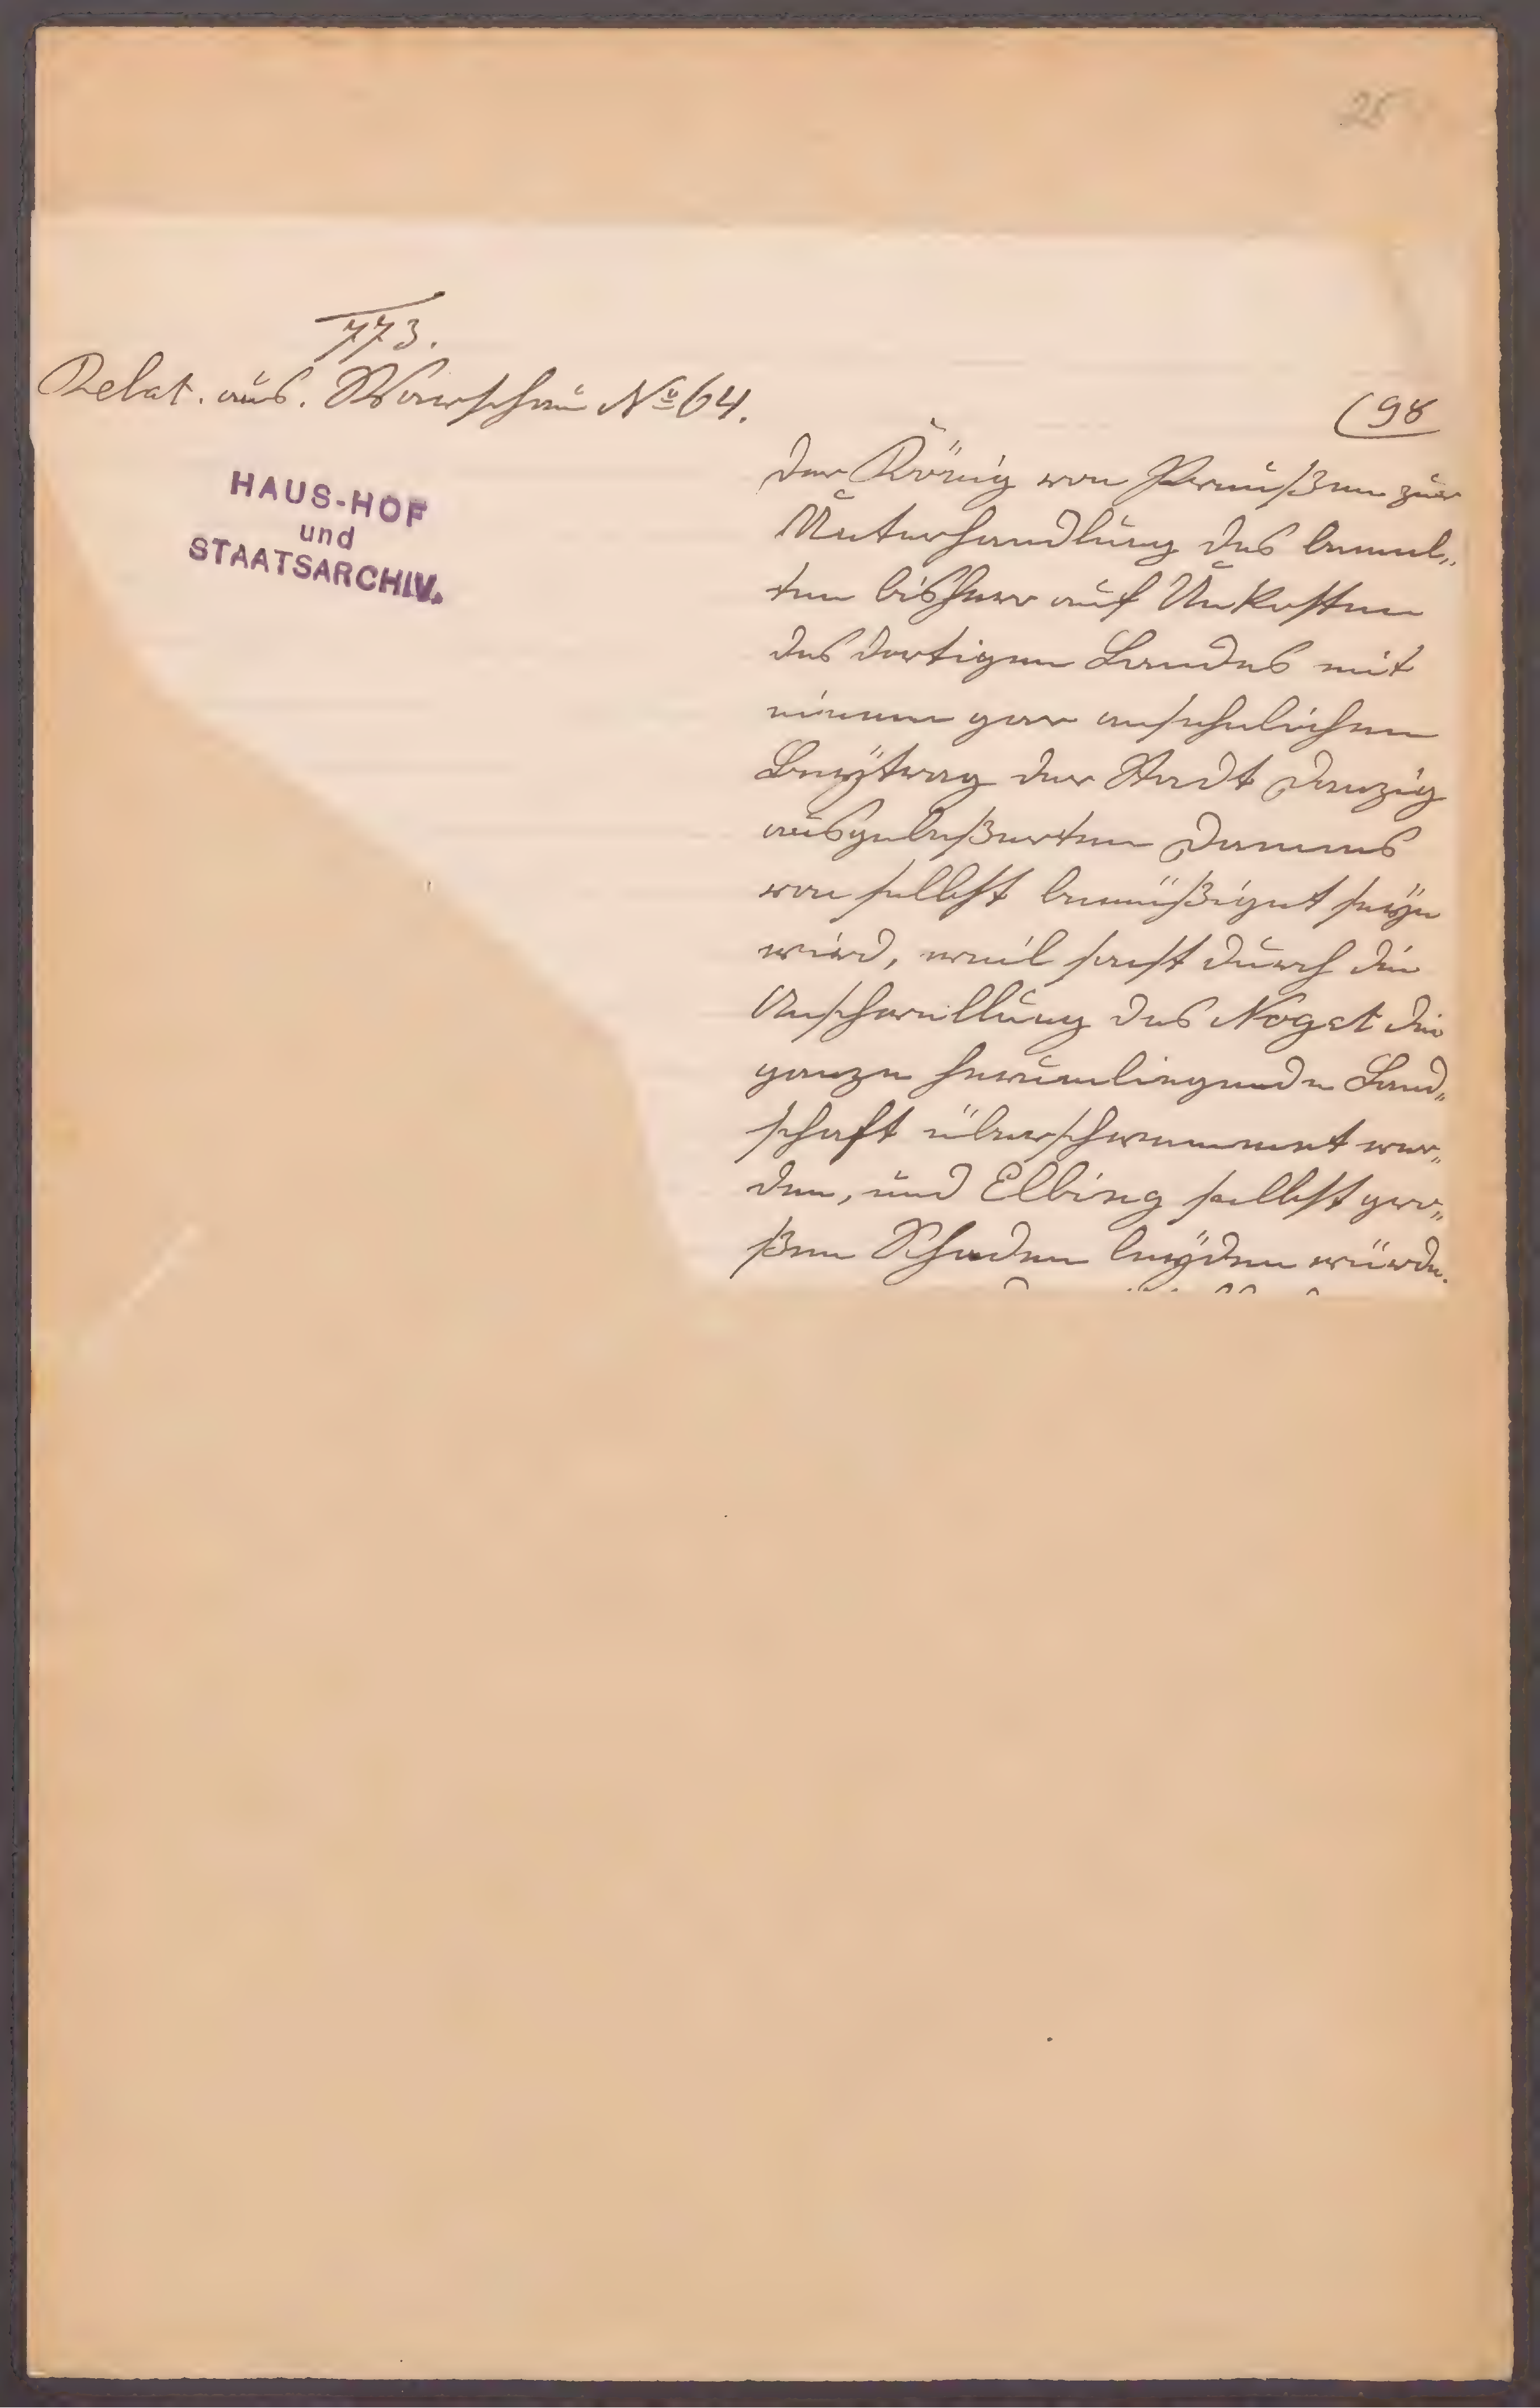 25
773.
Relat. aus. Warschau No 64.
HAUS-HOF
und
STAATSARCHIV.
(98
der König von Preußen zur
Unterhandlung des bemel„
ten bisherr auf Unkosten
des dortigen Landes mit
einem gar ansehnlichen
Beÿtrag der Stadt Danzig
ausgebeßerten Dammes
von selbst bemüßiget seÿn
wird, weil sonst durch die
Anschwellung des Nogat die
ganze herumliegende Land„
schaft überschwemmet wer„
den, und Elbing selbst gro„
ßen Schaden leÿden würde.